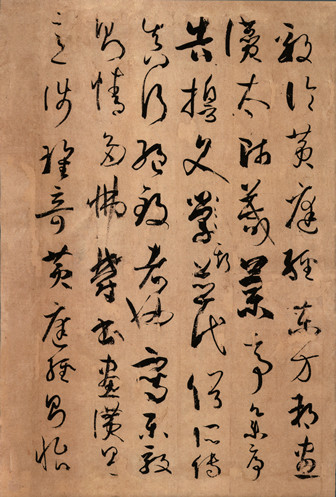 毅論黃庭經東方朔畫
讚太師箴蘭亭集序
告誓文斯並代俗所傳
真行絕致者也寫樂毅
則情多怫鬱書畫讚則
意涉瓌奇黃庭經則怡